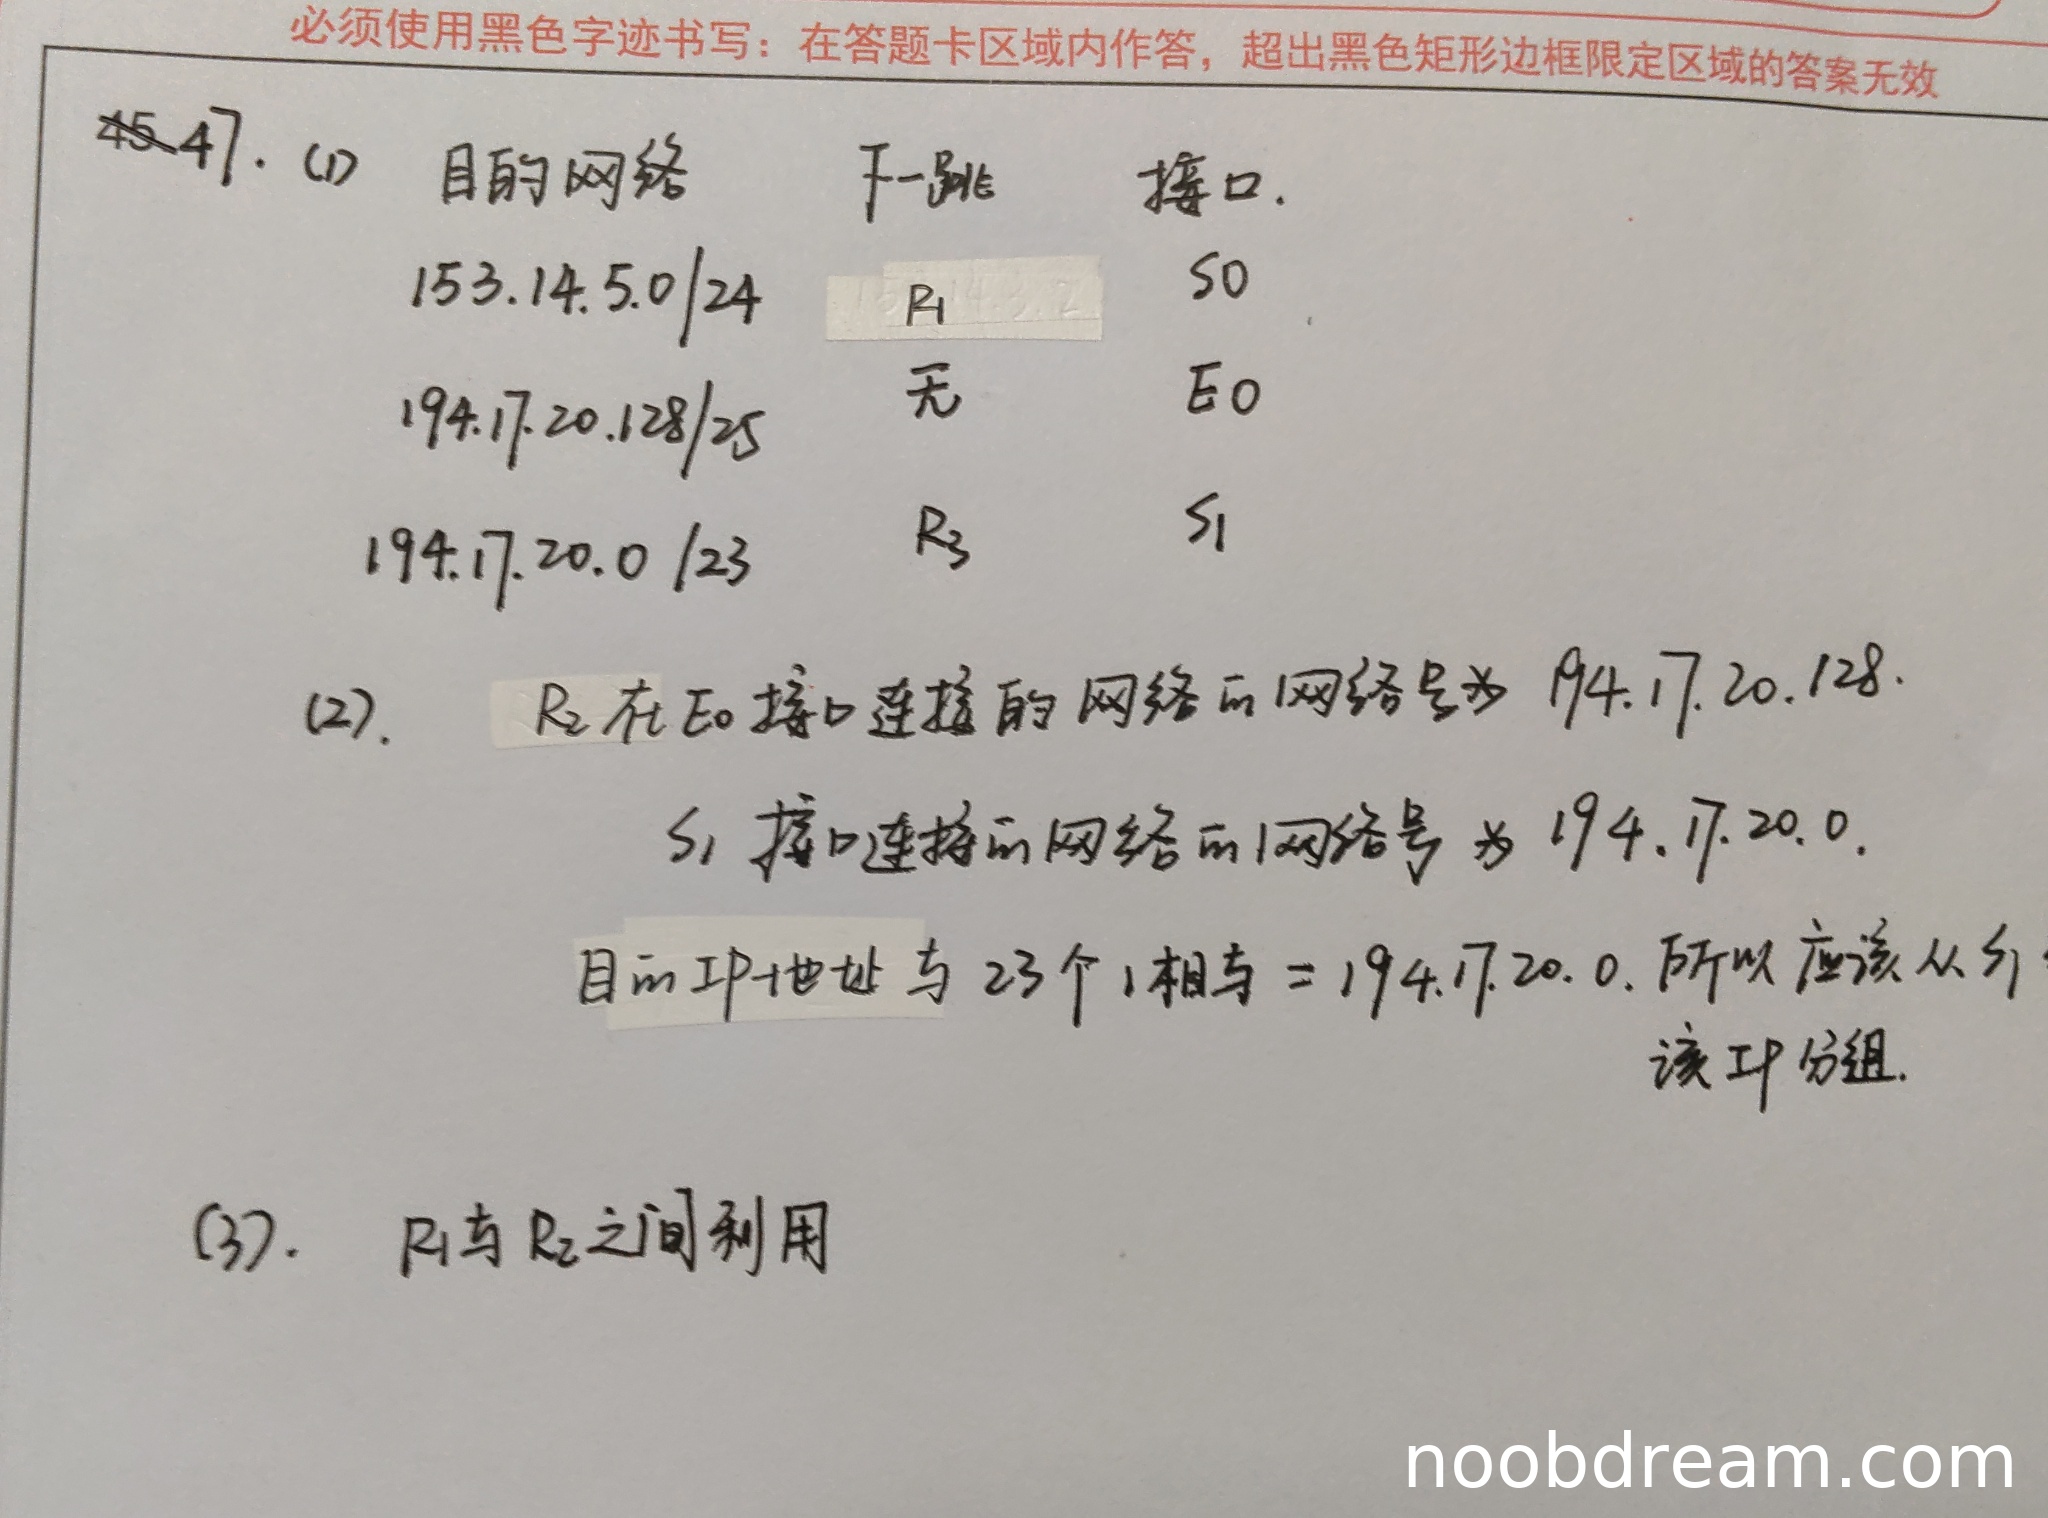 必须使用黑色字迹书写：在答题卡区域内作答，超出黑色矩形边框限定区域的答案无效
45 47. (1) 目的网络 下一跳 接口.
153.14.5.0/24 R1 S0
194.17.20.128/25 无 E0
194.17.20.0/23 R3 S1
(2). R2在E0接口连接的网络的网络号为 194.17.20.128.
S1 接口连接的网络的网络号为 194.17.20.0.
目的IP地址与23个1相与=194.17.20.0.所以应该从S1
该IP分组.
(3). R1与R2之间利用
noobdream.com